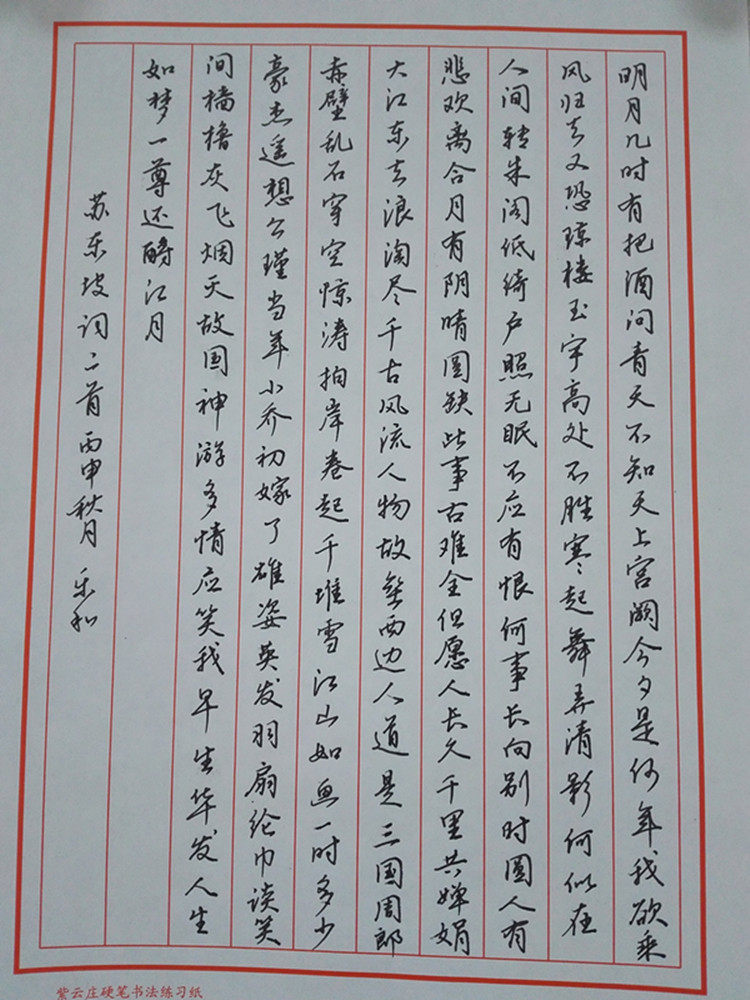 明月几时有把酒问青天不知天上宫阙今夕是何年我欲乘
风归去又恐琼楼玉宇高处不胜寒起舞弄清影何似在
人间转朱阁低绮户照无眠不应有恨何事长向别时圆人有
悲欢离合月有阴晴圆缺此事古难全但愿人长久千里共婵娟
大江东去浪淘尽千古风流人物故垒西边人道是三国周郎
赤壁乱石穿空惊涛拍岸卷起千堆雪江山如画一时多少
豪杰遥想公瑾当年小乔初嫁了雄姿英发羽扇纶巾谈笑
间樯橹灰飞烟灭故国神游多情应笑我早生华发人生
如梦一尊还酹江月
苏东坡词二首丙申秋月乐和
紫云庄硬笔书法练习纸